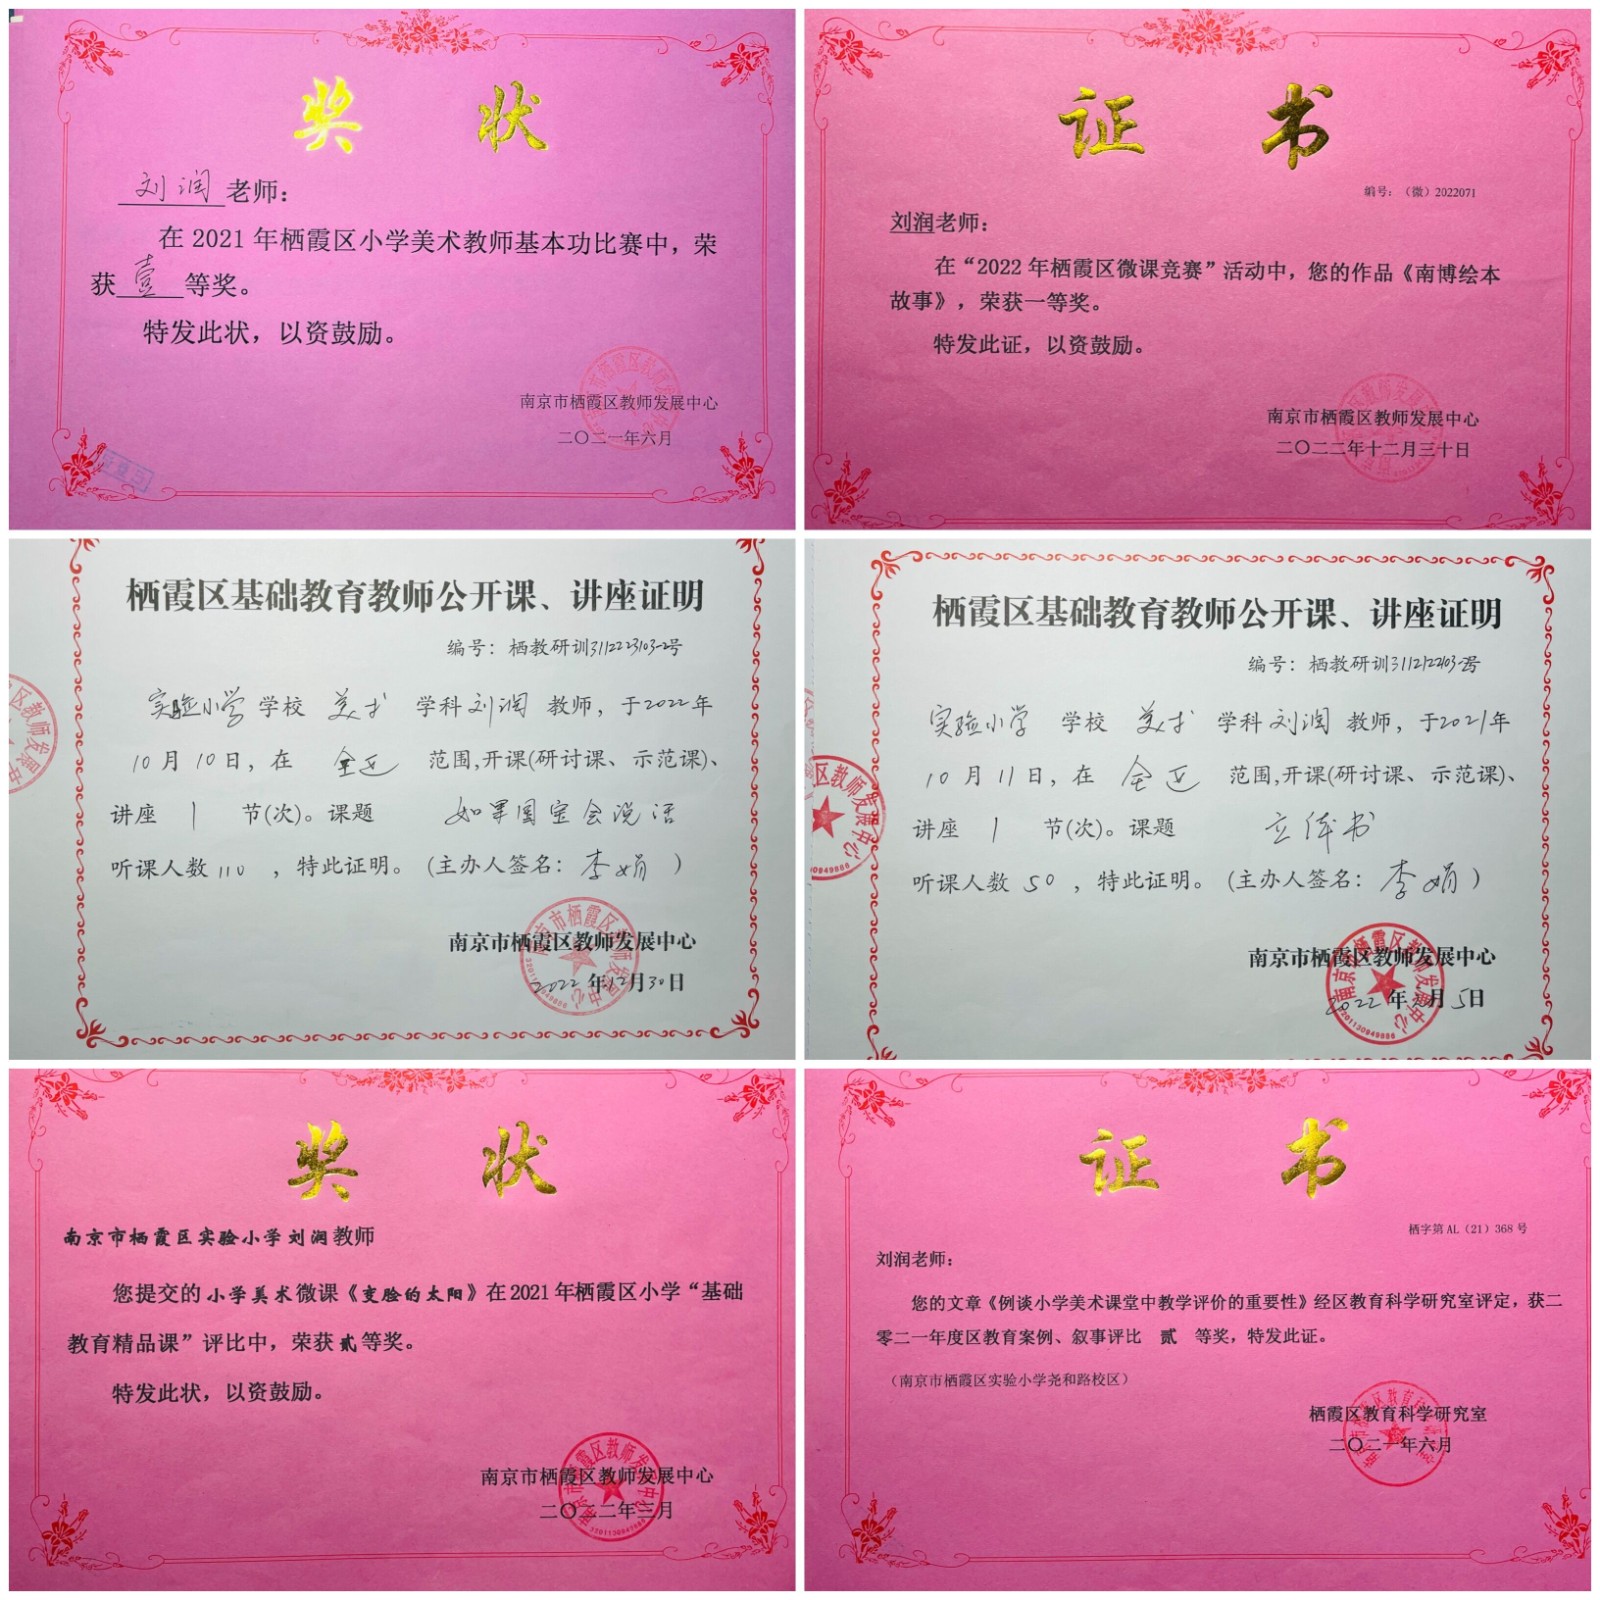 奖 状
刘润老师：
在 2021 年栖霞区小学美术教师基本功比赛中，荣
获 壹 等奖。
特发此状，以资鼓励。
南京市栖霞区教师发展中心
二〇二一年六月
证 书
编号：（微）2022071
刘润老师：
在“2022 年栖霞区微课竞赛”活动中，您的作品《南博绘本
故事》，荣获一等奖。
特发此证，以资鼓励。
南京市栖霞区教师发展中心
二〇二二年十二月三十日
栖霞区基础教育教师公开课、讲座证明
编号：栖教研训3112223103-2号
实验小学 学校 美术 学科 刘润 教师，于2022年
10月10日，在 全区 范围,开课(研讨课、示范课)、
讲座 1 节(次)。课题 如果国宝会说话
听课人数 110 ，特此证明。（主办人签名：李娟）
南京市栖霞区教师发展中心
2022年12月30日
栖霞区基础教育教师公开课、讲座证明
编号：栖教研训
实验小学 学校 美术 学科 刘润 教师，于2021年
10月11日，在 全区 范围,开课(研讨课、示范课)、
讲座 1 节(次)。课题 立体书
听课人数 50 ，特此证明。（主办人签名：李娟）
南京市栖霞区教师发展中心
2022年 月5日
奖 状
南京市栖霞区实验小学刘润教师
您提交的小学美术微课《变脸的太阳》在2021年栖霞区小学“基础
教育精品课”评比中，荣获贰等奖。
特发此状，以资鼓励。
南京市栖霞区教师发展中心
二〇二二年三月
证 书
栖字第 AL（21）368 号
刘润老师：
您的文章《例谈小学美术课堂中教学评价的重要性》经区教育科学研究室评定，获二
零二一年度区教育案例、叙事评比 贰 等奖，特发此证。
（南京市栖霞区实验小学尧和路校区）
栖霞区教育科学研究室
二〇二一年六月